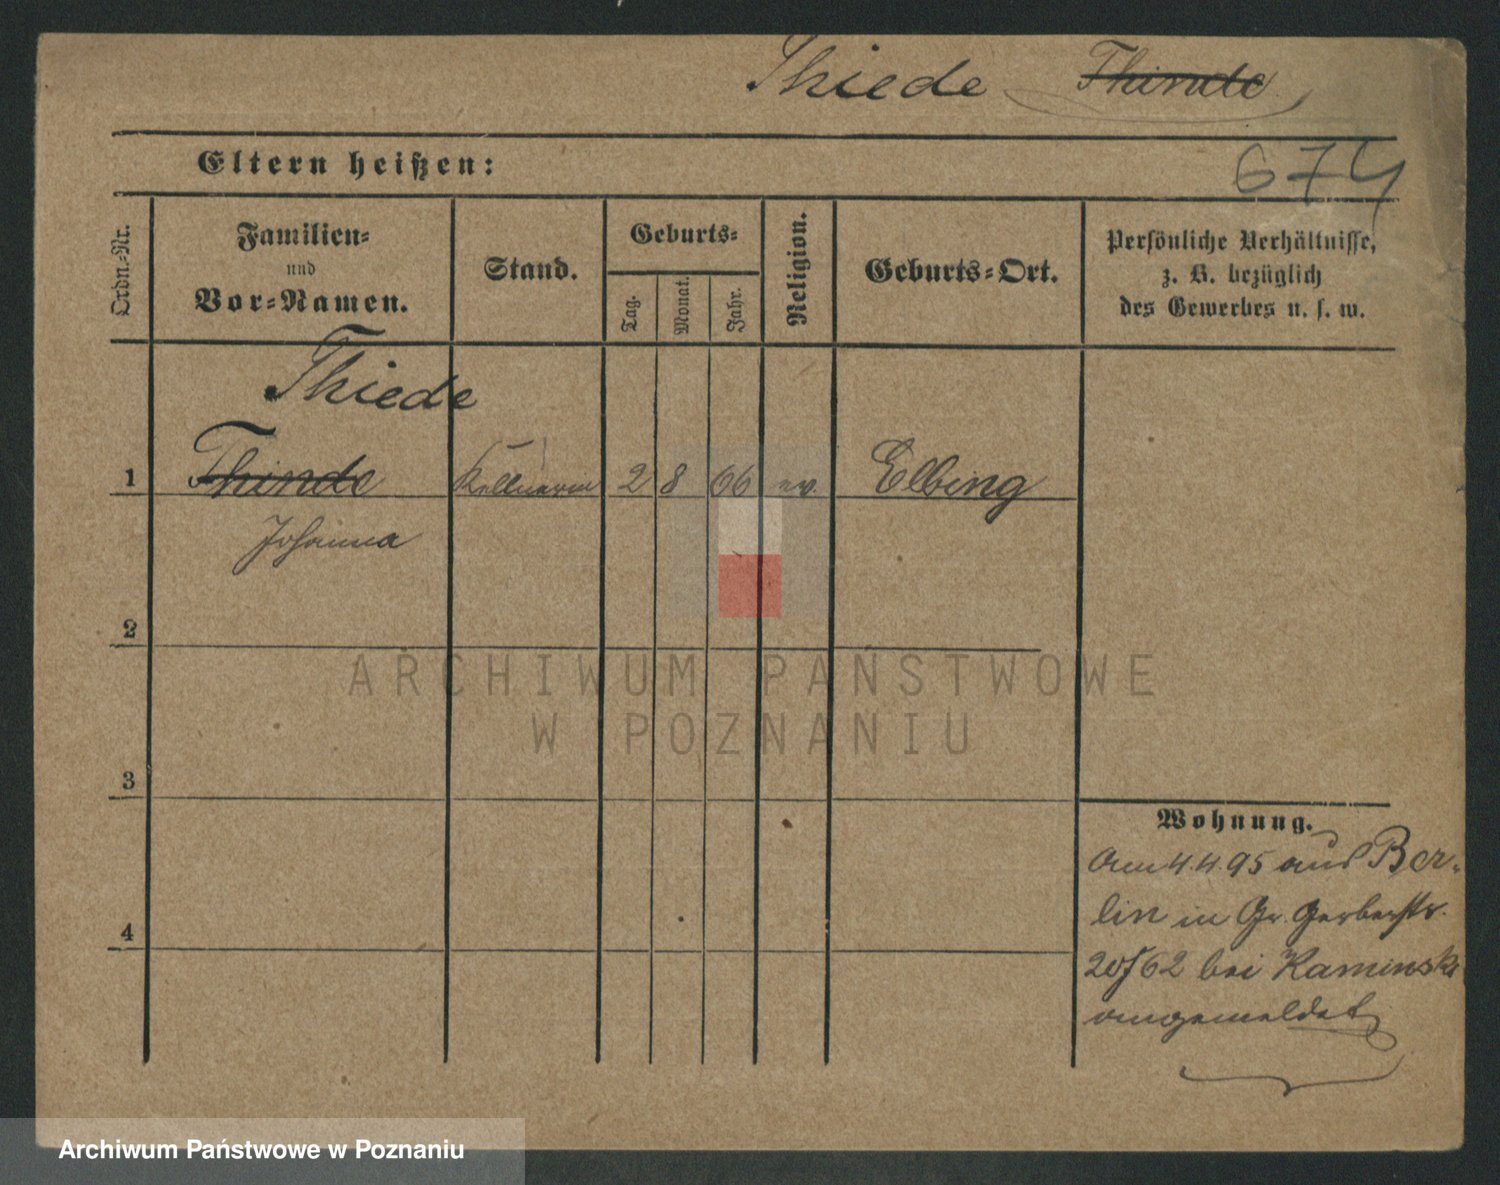 Thiede Thinde
Eltern heißen:
674
Ordn.-Nr.
Familien-
und
Vor-Namen.
Stand.
Geburts-
Tag.
Monat.
Jahr.
Religion.
Geburts-Ort.
Persönliche Verhältnisse,
z. B. bezüglich
des Gewerbes u. s. w.
Thiede
1 Thinde Kellnerin 2 8 66 ev. Elbing
Johanna
2
ARCHIWUM PAŃSTWOWE
W POZNANIU
3
Wohnung.
Am 4.4.95 aus Ber-
lin in Gr. Gerberstr.
bei Kaminski
4
angemeldet
Archiwum Państwowe w Poznaniu